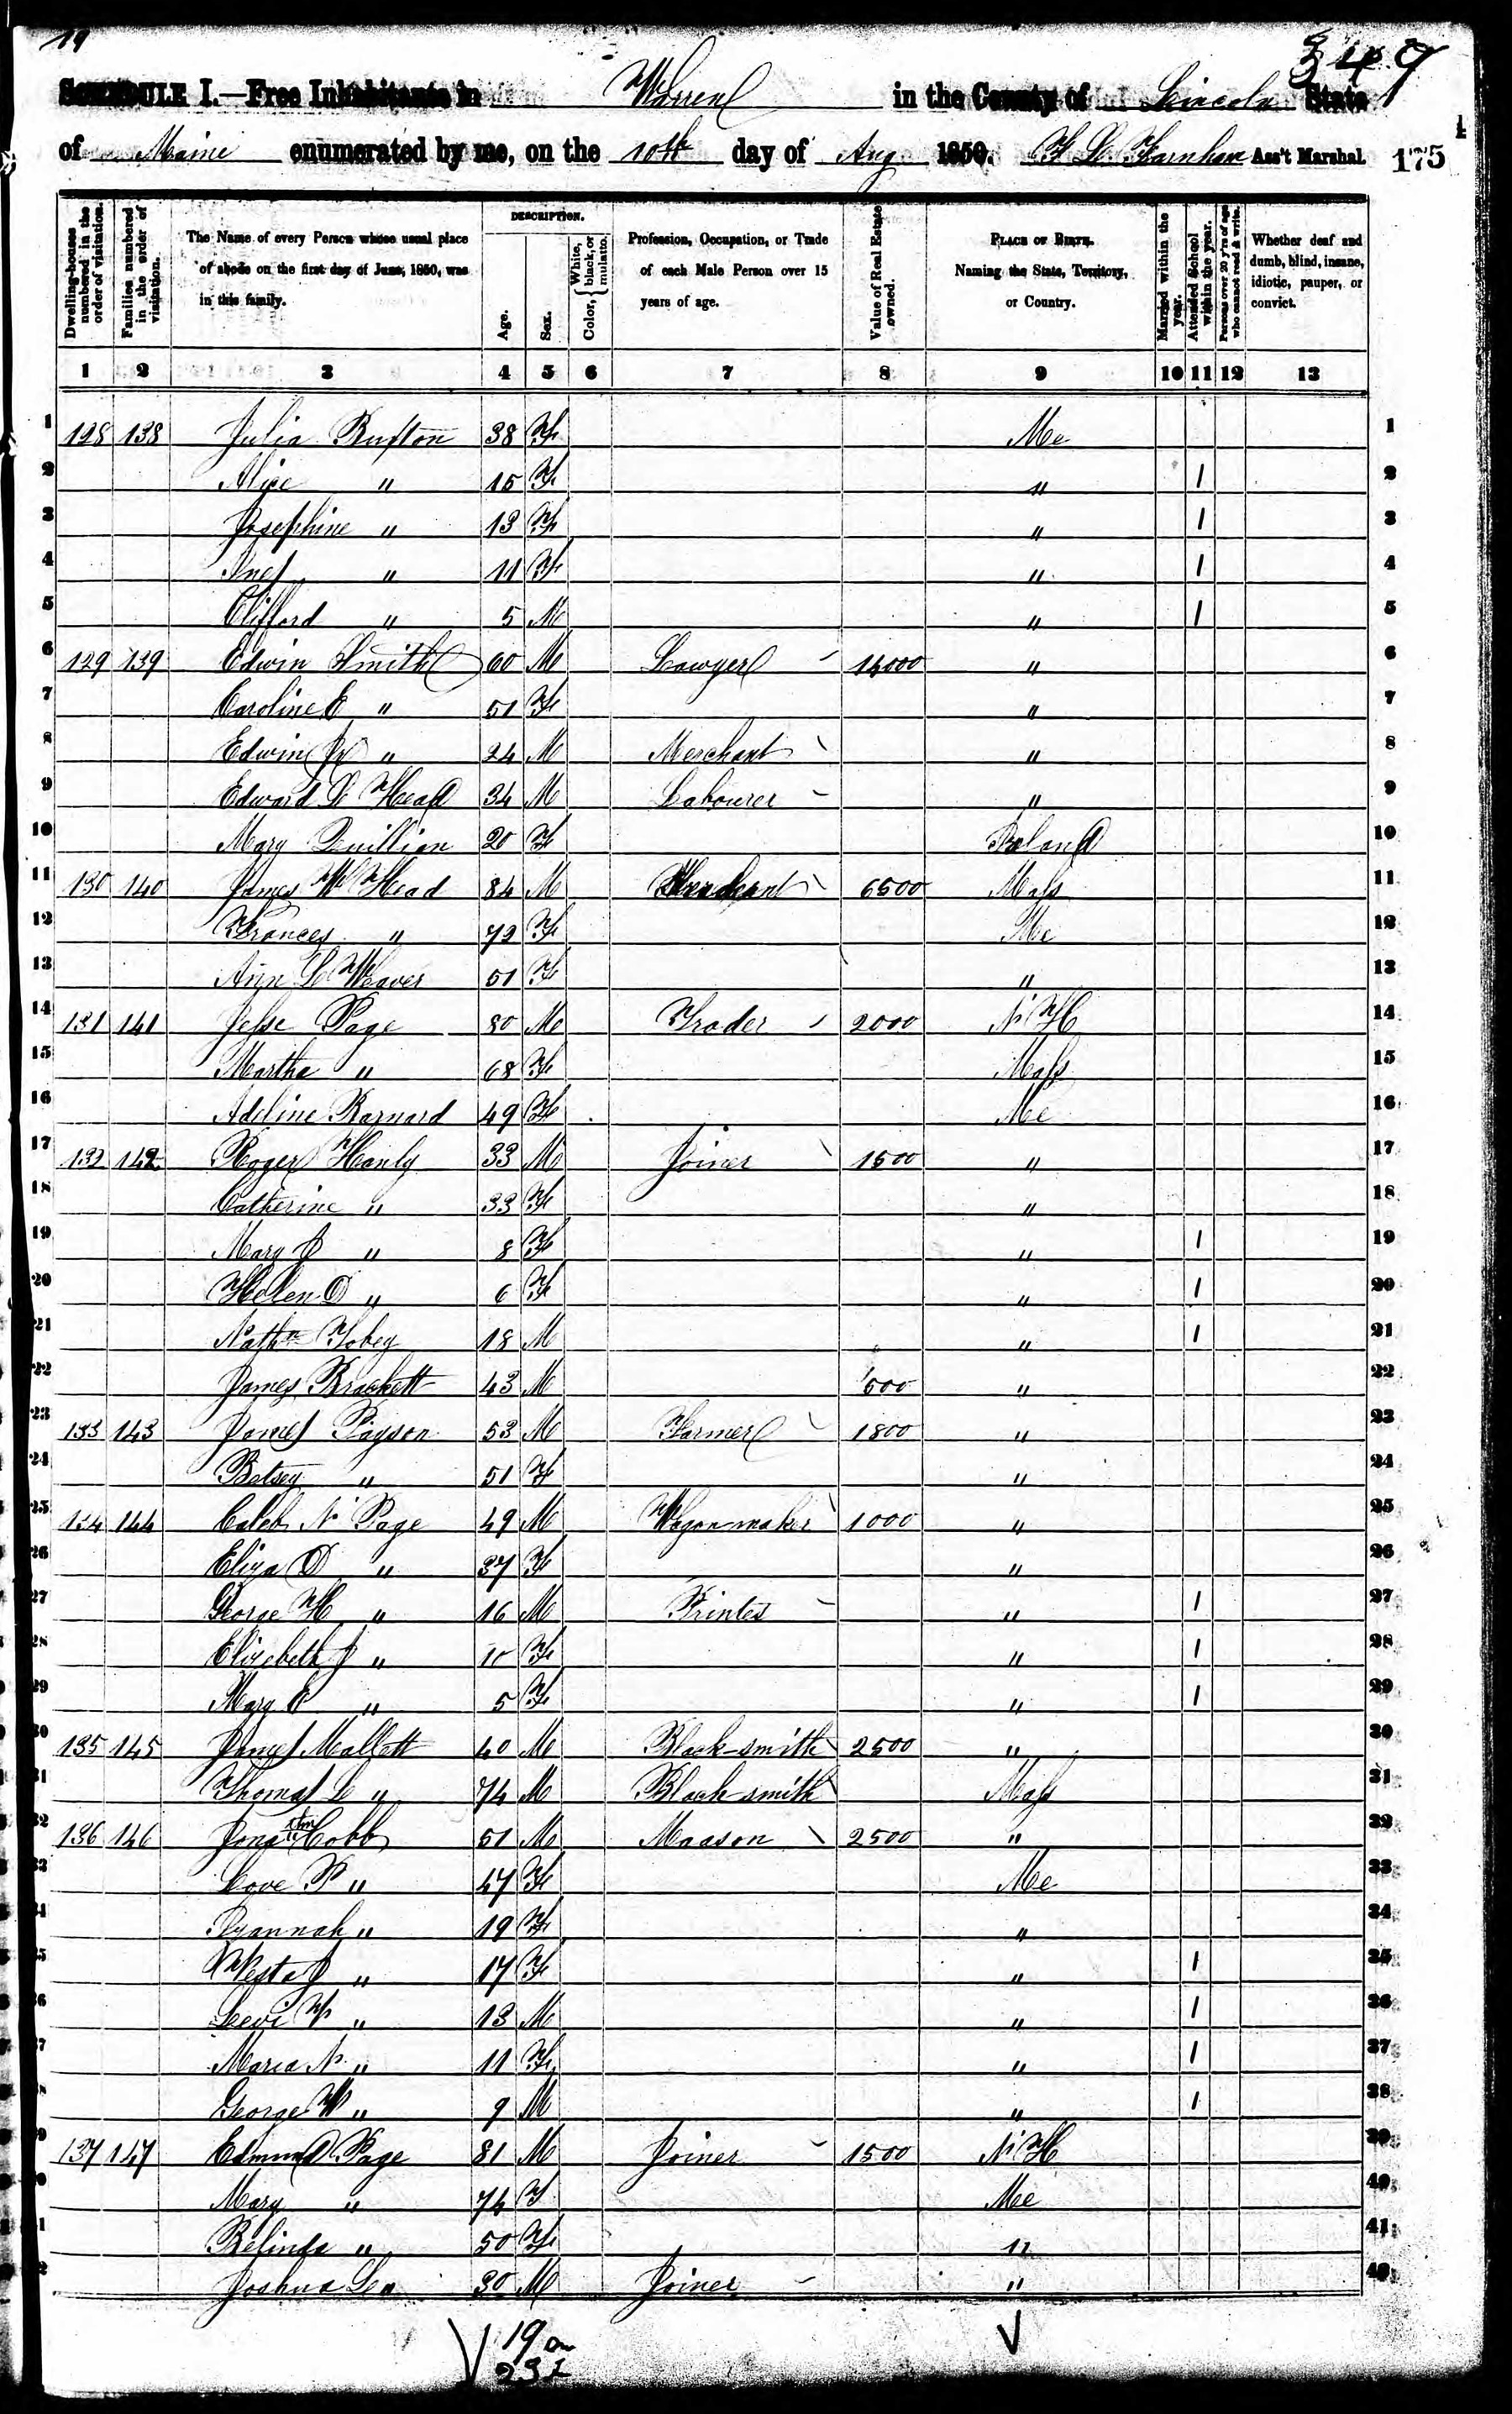 19
349
SCHEDULE I.—Free Inhabitants in Warren in the County of Lincoln State
of Maine enumerated by me, on the 10th day of Aug 1850. Ass't Marshal. 175
Dwelling-houses numbered in the order of visitation.
Families numbered in the order of visitation.
The Name of every Person whose usual place of abode on the first day of June, 1850, was in this family.
DESCRIPTION.
Age.
Sex.
Color, { White, black, or mulatto.
Profession, Occupation, or Trade of each Male Person over 15 years of age.
Value of Real Estate owned.
PLACE OF BIRTH. Naming the State, Territory, or Country.
Married within the year.
Attended School within the year.
Persons over 20 y'rs of age who cannot read & write.
Whether deaf and dumb, blind, insane, idiotic, pauper, or convict.
1 2 3 4 5 6 7 8 9 10 11 12 13
1 128 138 Julia Buxton 38 F Me 1
2 Alice " 15 F " 1 2
3 Josephine " 13 F " 1 3
4 " 11 F " 1 4
5 Clifford " 5 M " 1 5
6 129 139 Edwin Smith 60 M Lawyer 14000 " 6
7 Caroline E " 51 F " 7
8 Edwin " 24 M Merchant " 8
9 Edward Head 34 M Labourer " 9
10 Mary Quillian 20 F Ireland 10
11 130 140 James W Head 84 M Merchant 6500 Mass 11
12 Frances " 72 F Me 12
13 Ann L Weaver 51 F " 13
14 131 141 Jesse Page 80 M Trader 2000 N H 14
15 Martha " 68 F Mass 15
16 Adeline Barnard 49 F Me 16
17 132 142 Roger Hanly 33 M Joiner 1500 " 17
18 Catherine " 33 F " 18
19 Mary J " 8 F " 1 19
20 Helen O " 6 F " 1 20
21 Nathn Tobey 18 M " 1 21
22 James Brackett 43 M 500 " 22
23 133 143 James Payson 53 M Farmer 1800 " 23
24 Betsey " 51 F " 24
25 134 144 Caleb N Page 49 M Wagon maker 1000 " 25
26 Eliza O " 37 F " 26
27 George H " 16 M Printer " 1 27
28 Elizebeth J " 10 F " 1 28
29 Mary E " 5 F " 1 29
30 135 145 James Mallett 40 M Black-smith 2500 " 30
31 Thomas L " 74 M Black smith Mass 31
32 136 146 Jonathn Cobb 51 M Maason 2500 " 32
33 Love P " 47 F Me 33
34 " 19 F " 34
35 Vesta J " 17 F " 1 35
36 Levi " 13 M " 1 36
37 Maria N " 11 F " 1 37
38 George W " 9 M " 1 38
39 137 147 Edmund Page 81 M Joiner 1500 N H 39
40 Mary " 74 F Me 40
41 Belinda " 50 F " 41
42 Joshua 30 M Joiner " 42
19
23